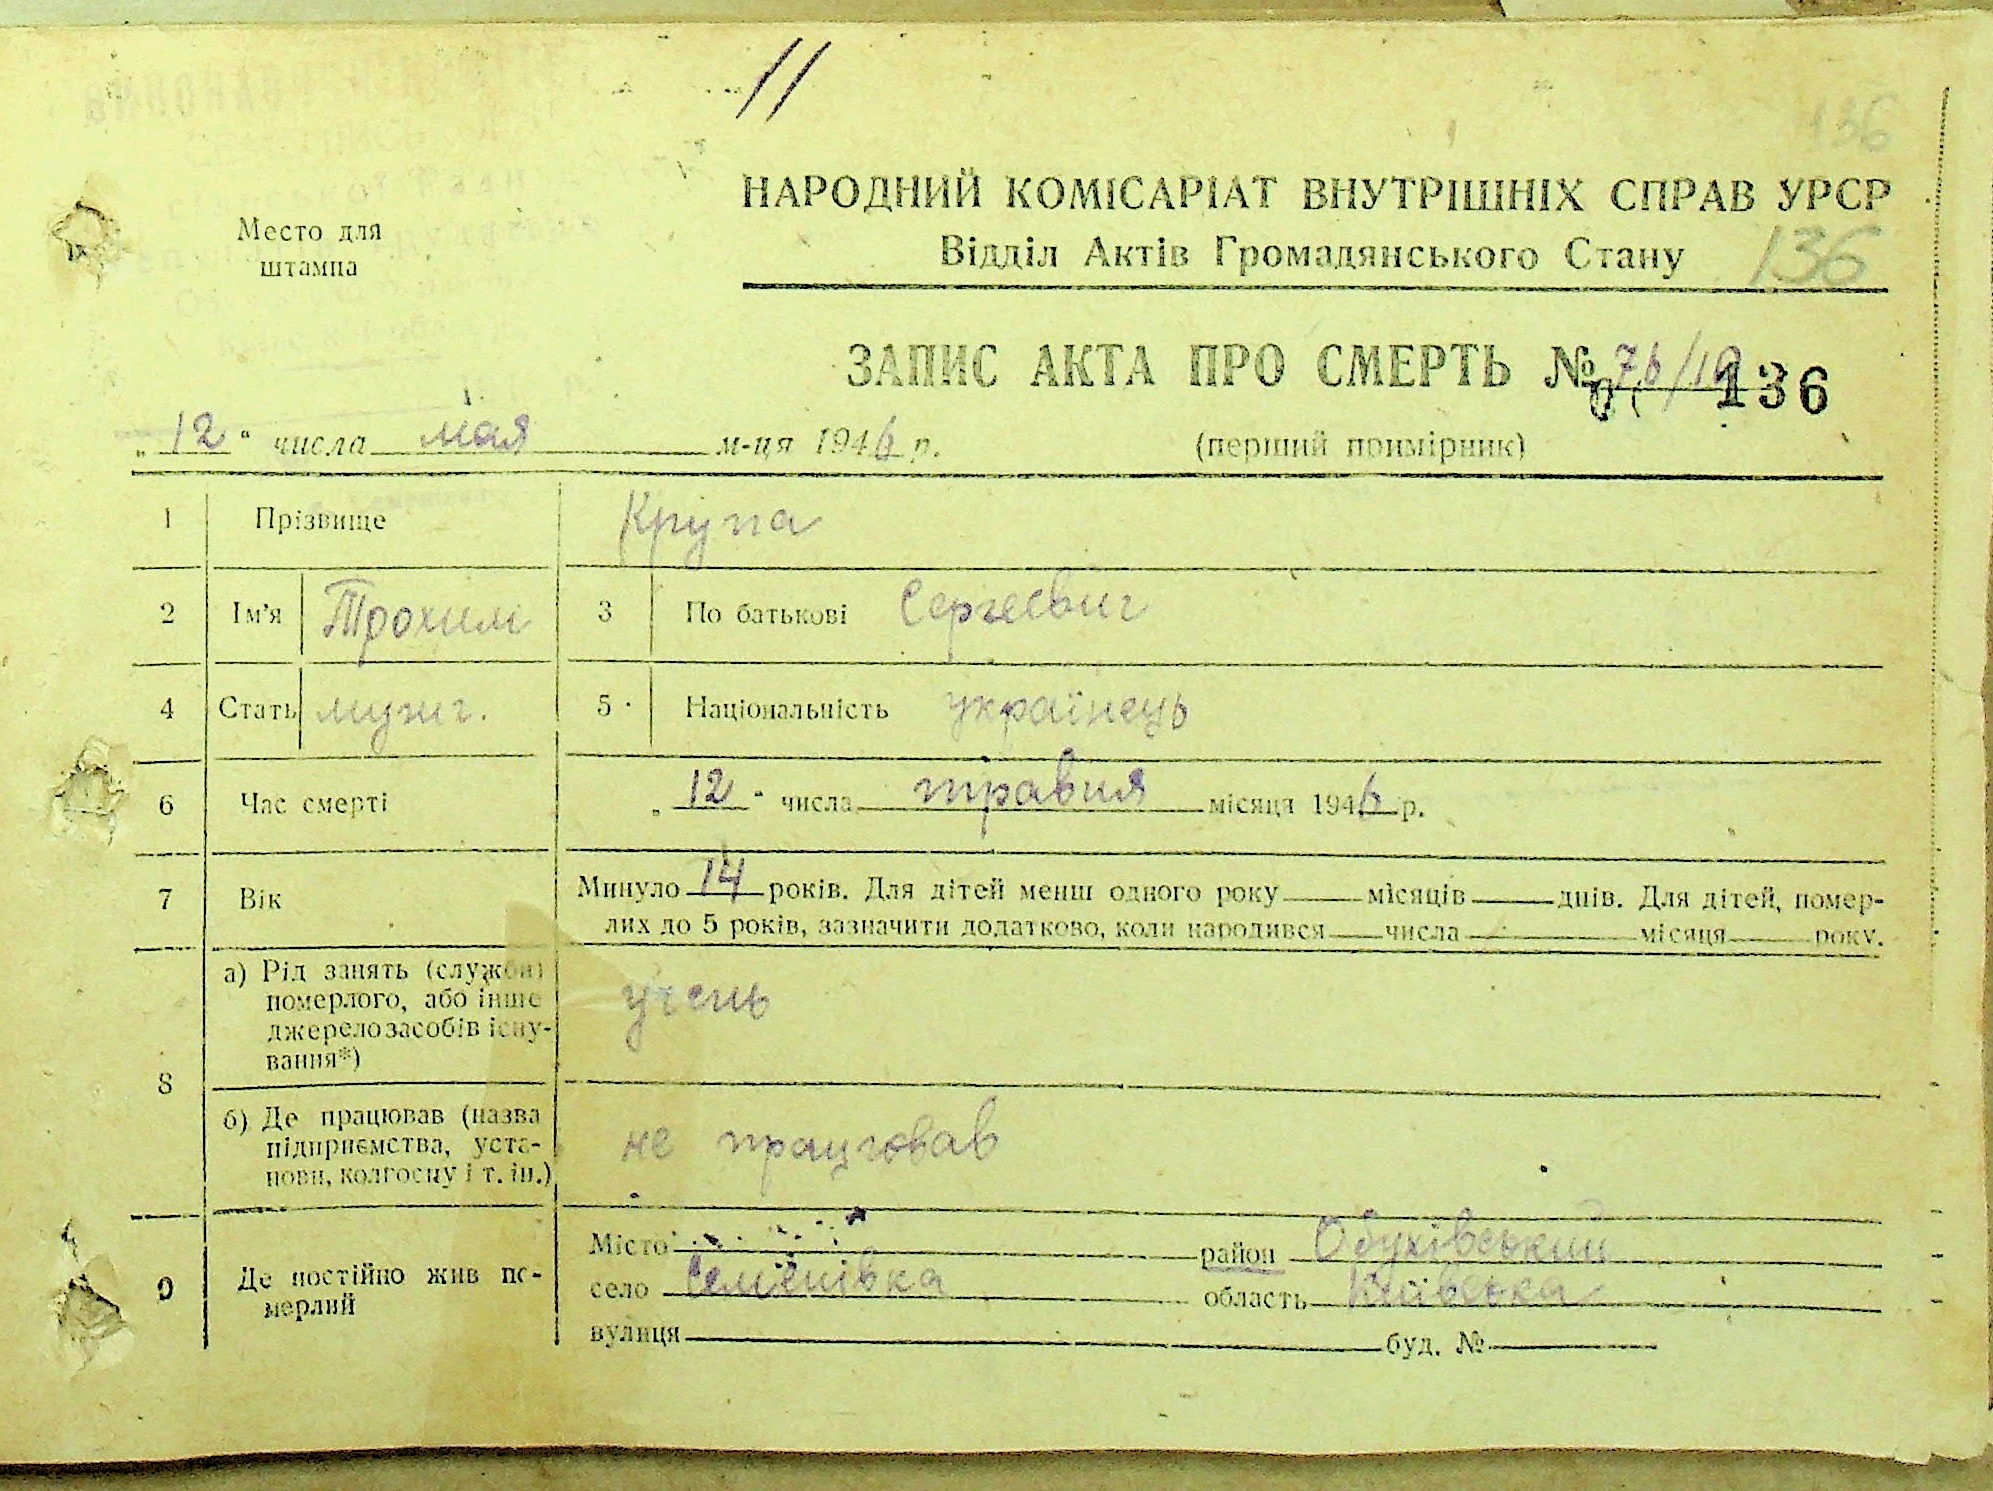 11
136
Место для
штампа
НАРОДНИЙ КОМІСАРІАТ ВНУТРІШНІХ СПРАВ УРСР
Відділ Актів Громадянського Стану 136
ЗАПИС АКТА ПРО СМЕРТЬ № 76/10
136
„12“ числа мая м-ця 1946 р. (перший примірник)
1 Прізвище Крупа
2 Ім'я Трохим 3 По батькові Сергеевич
4 Стать мужч. 5 Національність українець
6 Час смерті „12“ числа травня місяця 1946 р.
7 Вік Минуло 14 років. Для дітей менш одного року місяців днів. Для дітей, помер-
лих до 5 років, зазначити додатково, коли народився числа місяця року.
8 а) Рід занять (служби)
померлого, або інше
джерело засобів існу-
вання*)
учень
б) Де працював (назва
підприємства, уста-
нови, колгоспу і т. ін.)
не працював
9 Де постійно жив по-
мерлий
Місто район Обухівський
село Семенівка область Київська
вулиця буд. №